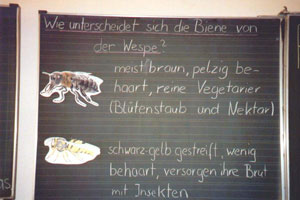 Wie unterscheidet sich die Biene von
der Wespe?
meist braun, pelzig be-
haart, reine Vegetarier
(Blütenstaub und Nektar)
schwarz-gelb gestreift, wenig
behaart, versorgen ihre Brut
mit Insekten